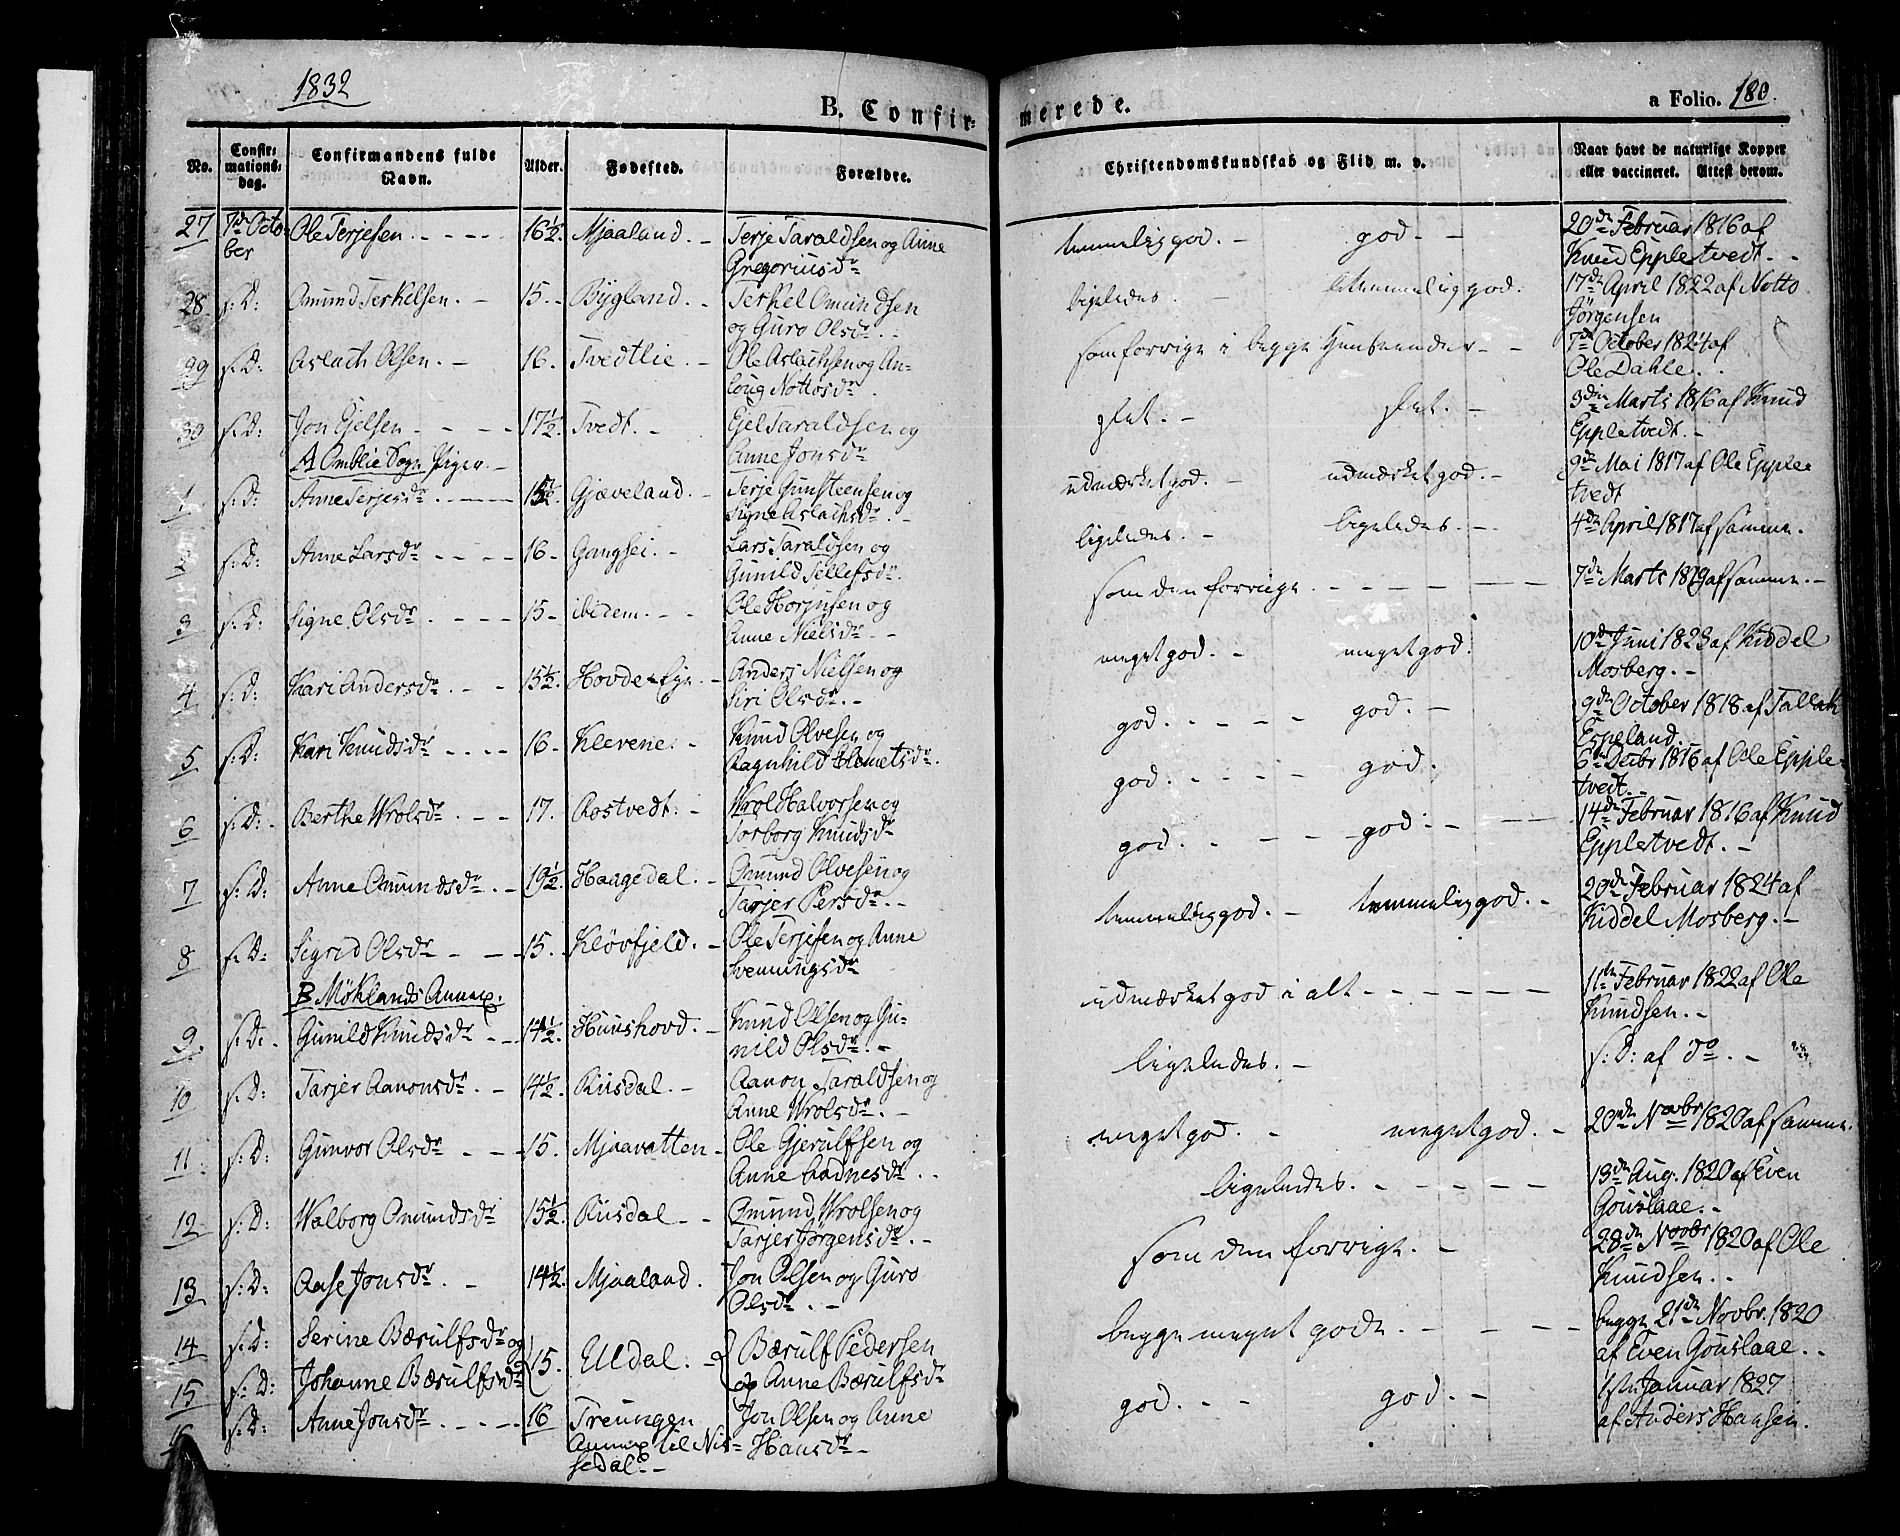 1832
B. Confirmerede.
a Folio. 180.
No.
Confir:
mations:
dag.
Confirmandens fulde
Navn.
Alder.
Fødested.
Forældre.
Christendomskundskab og Flid m. v.
Naar havt de naturlige Kopper
eller vaccineret. Attest derom.
27 7de Octo- Ole Terjesen. 16½. Mjaaland. Terje Taraldsen og Anne temmelig god. god. 20de Februar 1816 af
ber Gregoriusdr Knud Eppletvedt.
28 s: D: Omund Terkelsen. 15. Bygland. Terkel Omundsen ligeledes. temmelig god. 17de April 1822 af Notto
og Guro Olsdr. Jørgensen
29 s: D: Aslach Olsen. 16. Tvedtlie. Ole Aslachsen og An- som forrige i begge Henseender 7de October 1824 af
loug Nottosdr. Ole Dahle.
30 s: D: Jon Ejelsen. 17½. Tvedt. Ejel Taraldsen og slet. slet. 3die Marts 1816 af Knud
Anne Jonsdr Eppletvedt.
A Omblie Sogn Piger.
1 s: D: Anne Terjesdr. 15½. Gjæveland. Terje Gunsteensen og udmærket god. udmærket god. 9de Mai 1817 af Ole Epple-
Signe Aslachsdr. tvedt
2 s: D: Anne Larsdr 16 Gangsei. Lars Taraldsen og ligeledes. ligeledes. 4de April 1817 af samme.
Gunild Tellefsdr.
3 s: D: Signe Olsdr. 15 ibidem. Ole Horjusen og som den forrige. 7de Marts 1819 af samme.
Anne Nielsdr
4 s: D: Kari Andersdr. 15½. Hovde Anders Nielsen og meget god. meget god. 10de Juni 1823 af Kiddel
Siri Olsdr. Mosberg.
5 s: D: Kari Knudsdr 16 Klevene. Knud Olvesen og god. god. 9de October 1818 af Tallak
Ragnhild Espeland.
6 s: D: Berthe Wrolsdr. 17. Rostvedt. Wrol Halvorsen og god. god. 6te Decbr 1816 af Ole Epple-
Torborg Knudsdr tvedt.
7 s: D: Anne Omundsdr. 19½. Haagedal. Omund Olvesen og god. god. 14de Februar 1816 af Knud
Tarjer Persdr. Eppletvedt.
8 s: D: Sigrid Olsdr 15. Kløvfjeld. Ole Terjesen og Anne temmelig god. temmelig god. 20de Februar 1824 af
Svenningsdr Kiddel Mosberg.
B Möklands Annex.
9. s: D: Gunild Knudsdr 14½. Huushovd. Knud Olsen og Gu- udmærket god i alt 11te Februar 1822 af Ole
nild Olsdr. Knudsen.
10 s: D: Tarjer Aanonsdr. 14½. Riisdal. Aanon Taraldsen og ligeledes. s: D: af do.
Anne Wrolsdr.
11. s: D: Gunvor Olsdr 15. Mjaavatten Ole Gjerulfsen og meget god. meget god. 20de Novbr 1820 af samme.
Anne Ladnesdr.
12 s: D: Walborg Omundsdr 15½. Riisdal Omund Wrolsen og ligeledes. 13de Aug. 1820 af Even
Tarjer Jörgensdr. Gouslaae.
13 s: D: Aase Jonsdr. 14½. Mjaaland. Jon Olsen og Guro som den forrige. 28de Novbr 1820 af Ole
Olsdr. Knudsen.
14 s: D: Serine Bærulfsdr og
15 s: D: Johanne Bærulfsdr 15. Uldal. Bærulf Pedersen begge meget gode. begge 21de Novbr. 1820
og Anne Bærulfsdr af Even Gouslaae.
16 s: D: Anne Jonsdr. 16 Treungen Jon Olsen og Anne god. god. 1ste Januar 1827
Annex til Nis- Hansdr af Anders Hansen.
sedal.